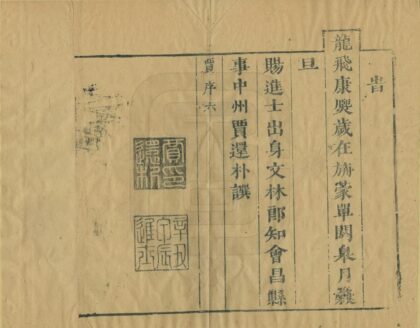 旹
龍飛康熙歲在旃蒙單閼皋月穀
旦
賜進士出身文林郎知會昌縣
事中州賈還朴譔
賈序六
賈印還朴